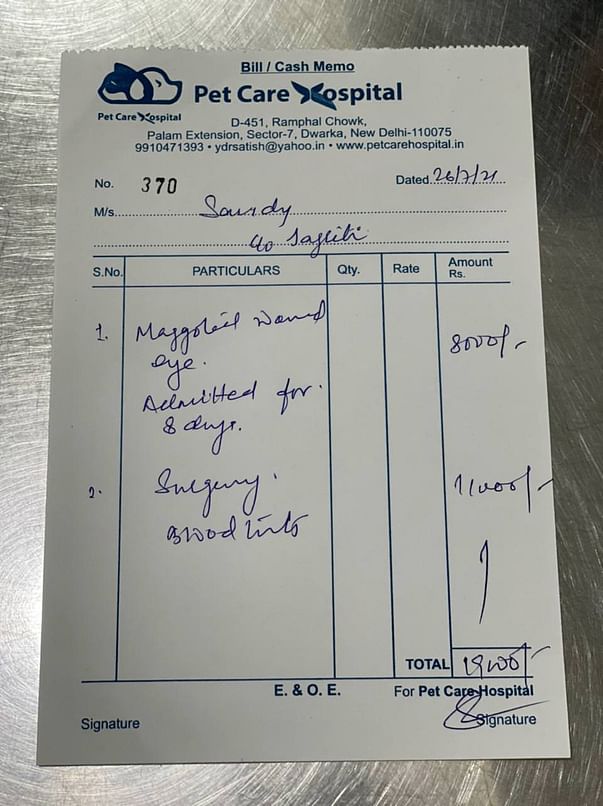 Bill / Cash Memo
Pet Care Hospital
Pet Care Hospital
D-451, Ramphal Chowk,
Palam Extension, Sector-7, Dwarka, New Delhi-110075
9910471393 • ydrsatish@yahoo.in • www.petcarehospital.in
No. 370 Dated 26/7/21
M/s
c/o
S.No. PARTICULARS Qty. Rate Amount Rs.
1. Maggoted wound 8000/-
eye.
Admitted for
8 days.
2. Surgery. 11000/-
Blood
TOTAL 19000/-
E. & O. E. For Pet Care Hospital
Signature Signature